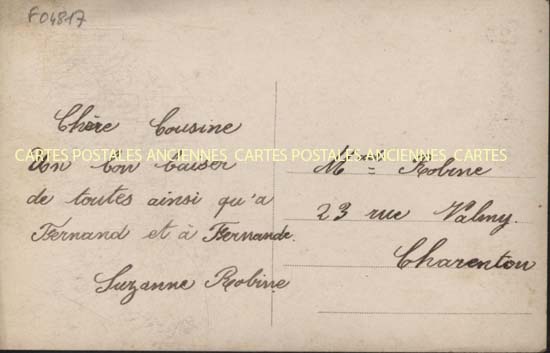 F04817
Chère Cousine
CARTES POSTALES ANCIENNES CARTES POSTALES ANCIENNES CARTES
Un bon baiser
de toutes ainsi qu'a
Fernand et à Fernande.
Suzanne Robine
Robine
23 rue Valmy.
Charenton